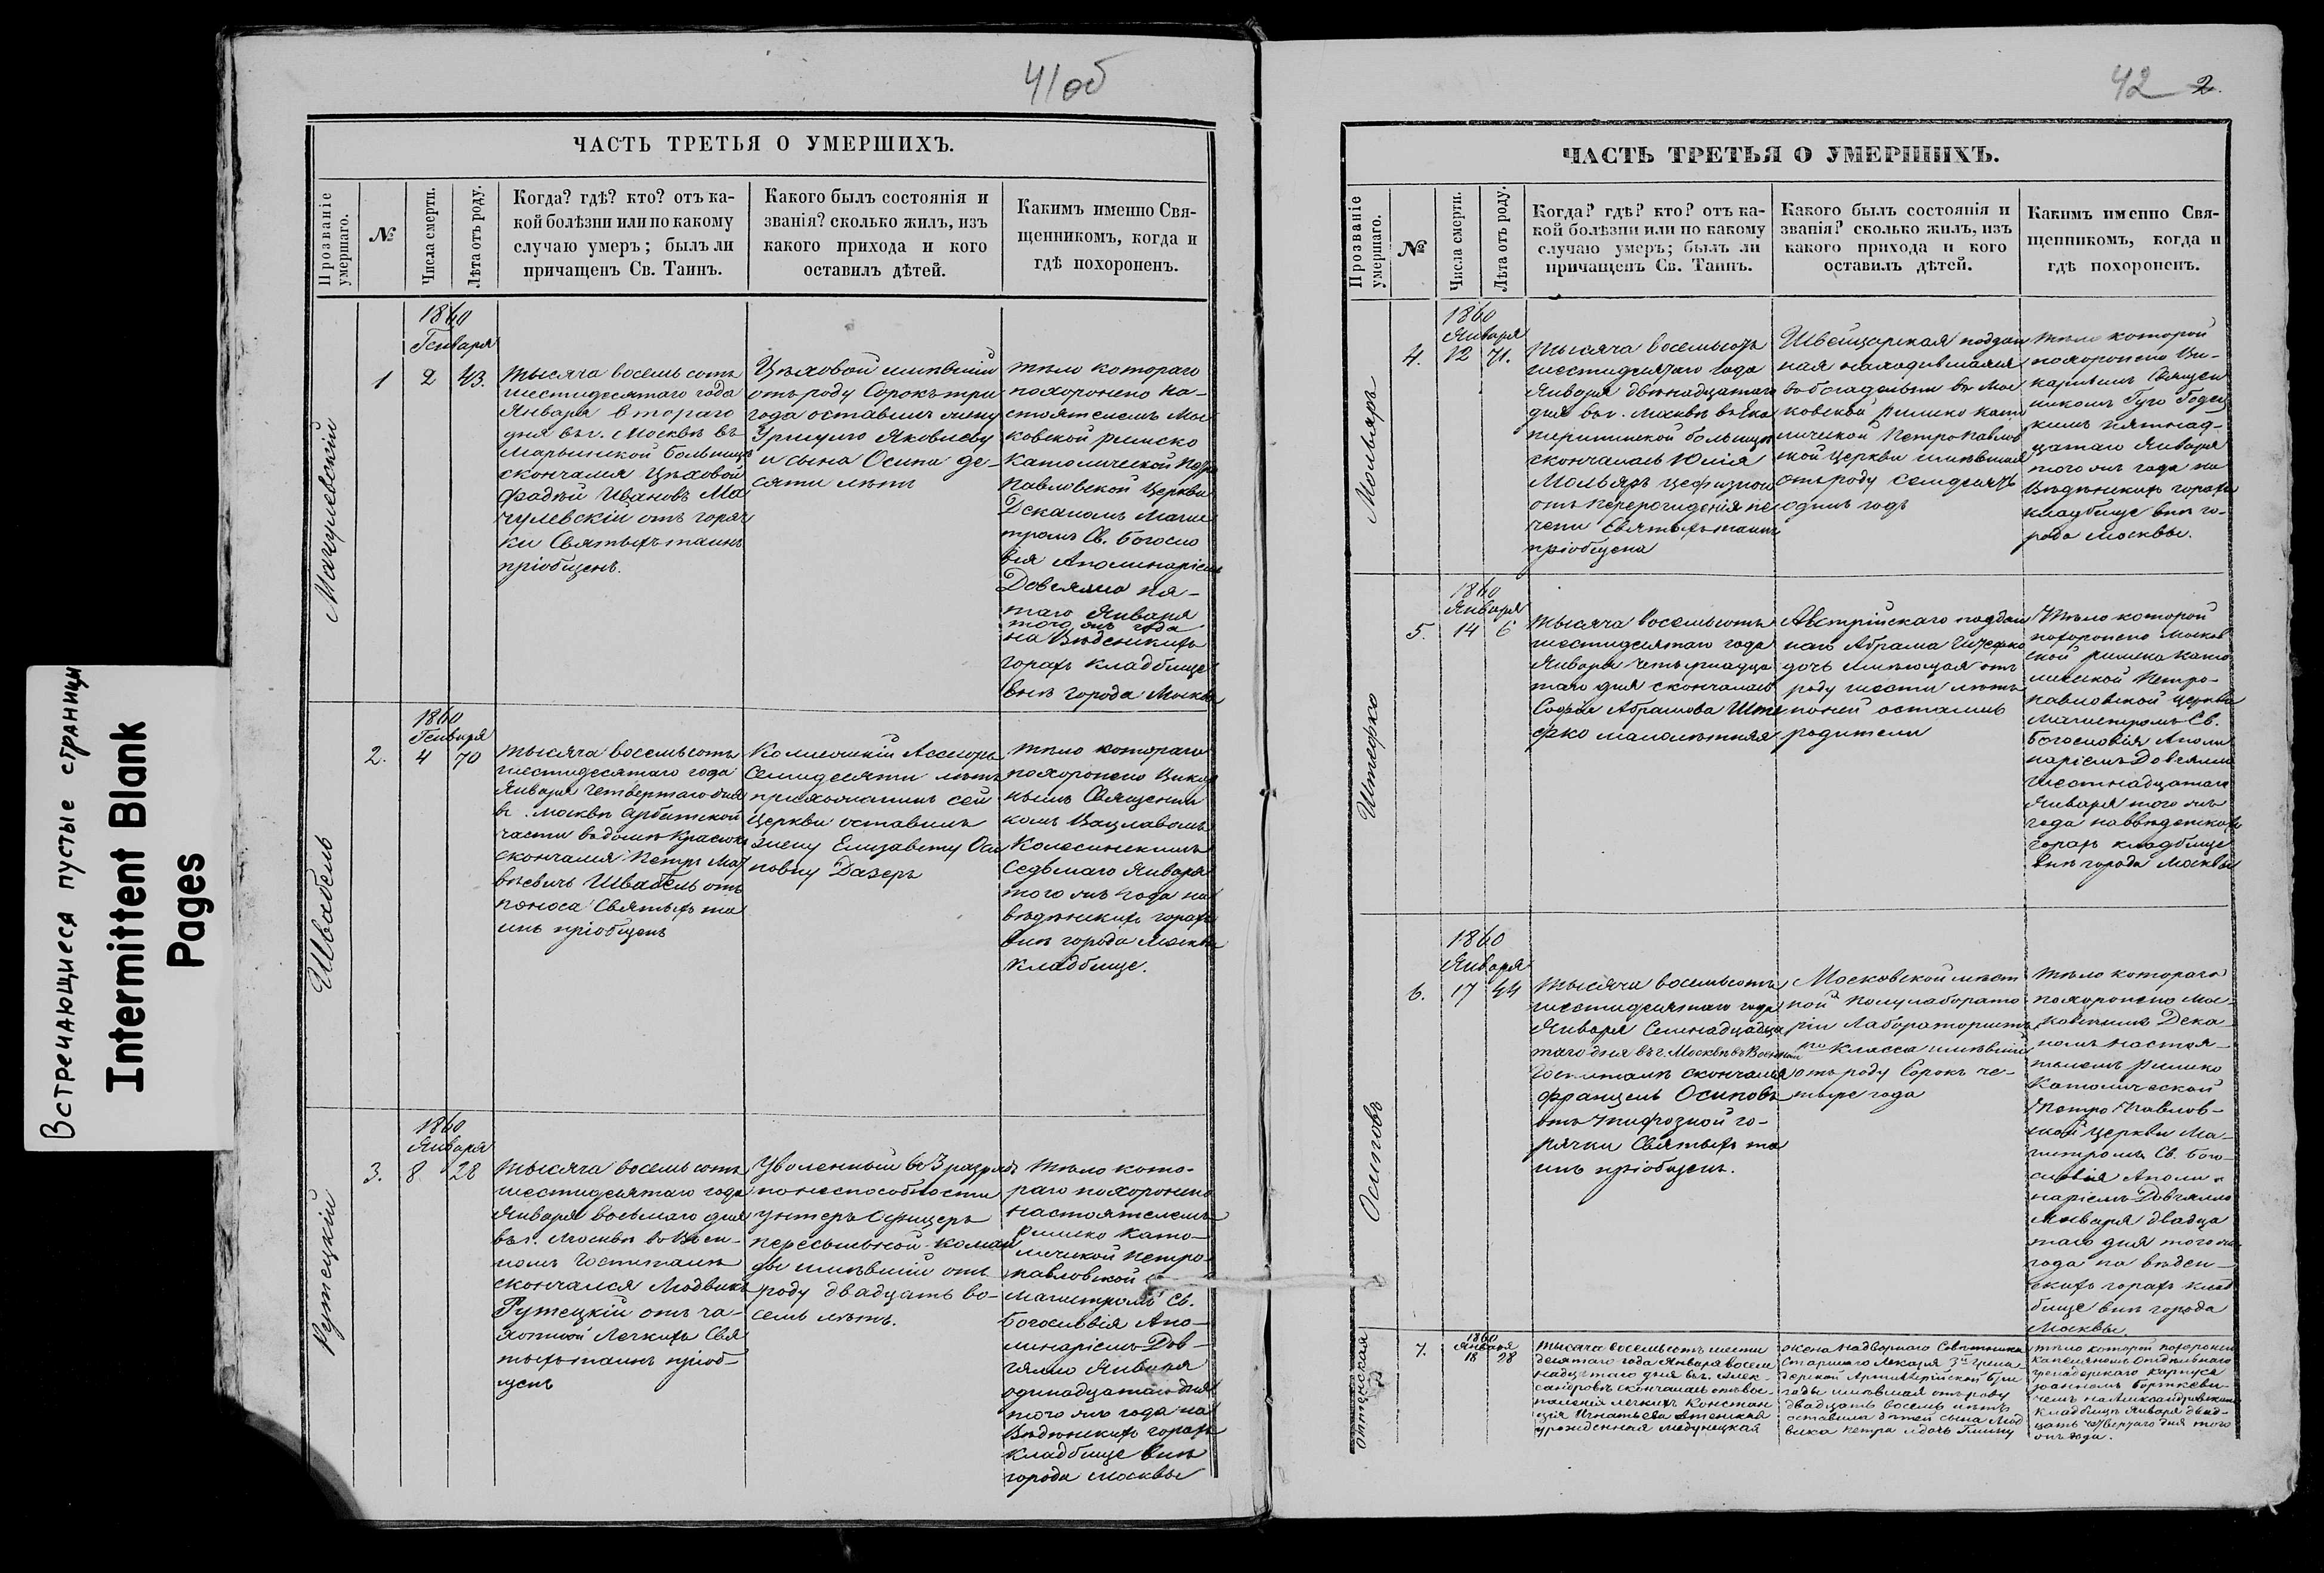 Встречающиеся пустые страницы
Intermittent Blank
Pages
41об
ЧАСТЬ ТРЕТЬЯ О УМЕРШИХЪ.
Прозваніе
умершаго.
№
Числа смерти.
Лѣта отъ роду.
Когда? гдѣ? кто? отъ ка-
кой болѣзни или по какому
случаю умеръ; былъ ли
причащенъ Св. Таинъ.
Какого былъ состоянія и
званія? сколько жилъ, изъ
какого прихода и кого
оставилъ дѣтей.
Какимъ именно Свя-
щенникомъ, когда и
гдѣ похороненъ.
Мачулевскій
1860
Генваря
1 2 43.
тысяча восемь сотъ
шестидесятаго года
Января втораго
дня въ г. Москвѣ въ
Марьинской больницѣ
скончался Цѣховой
Фадѣй Ивановъ Ма
чулевскій отъ горяч
ки Святыхъ таинъ
пріобщенъ.
Цѣховой имѣвшій
отъ роду Сорокъ три
года оставилъ жену
Уршулю Яковлеву
и сына Осипа де-
сяти лѣтъ
тѣло котораго
похоронено На-
стоятелемъ Мос
ковской римско
Католической Петро
Павловской Церкви
Деканомъ Магис
тромъ Св. Богосло
вія Аполинаріемъ
Довгялло пя-
таго Января
того жъ года
на Вѣденскихъ
горахъ кладбище
внѣ города Москвы
Швабель
1860
Генваря
2. 4 70
тысяча восемьсотъ
шестидесятаго года
Января четвертаго дня
въ г. Москвѣ Арбатской
части въ домѣ
скончался Петръ Мат
вѣевичъ Швабель отъ
поноса Святыхъ та
инъ пріобщенъ
Коллежскій Ассесоръ
Семидесяти лѣтъ
прихожанинъ сей
Церкви оставилъ
жену Елизавету Оси
повну Дазеръ
тѣло котораго
похоронено Викар
нымъ Священни
комъ Вацлавомъ
Колесинскимъ
Седьмаго Января
того жъ года на
вѣденскихъ горахъ
внѣ города Москвы
Кладбище.
Рутецкій
1860
Января
3. 8 28
тысяча восемь сотъ
шестидесятаго года
Января восьмаго дня
въ г. Москвѣ въ Воен-
номъ госпиталѣ
скончался Людвикъ
Рутецкій отъ ча-
хотной легкихъ Свя
тыхъ таинъ пріоб-
щенъ
Уволенный въ 3 разрядъ
по неспособности
унтеръ Офицеръ
пересыльной коман
ды имѣвшій отъ
роду двадцать во-
семь лѣтъ.
тѣло кото-
раго похоронено
настоятелемъ
римско Като-
лической Петро-
павловской
Магистромъ Св.
Богословія Апо-
линаріемъ Дов-
гялло Января
одинадцатаго дня
того жъ года на
Вѣденскихъ горахъ
кладбище внѣ
города Москвы
42 2.
ЧАСТЬ ТРЕТЬЯ О УМЕРШИХЪ.
Прозваніе
умершаго.
№
Числа смерти.
Лѣта отъ роду.
Когда? гдѣ? кто? отъ ка-
кой болѣзни или по какому
случаю умеръ; былъ ли
причащенъ Св. Таинъ.
Какого былъ состоянія и
званія? сколько жилъ, изъ
какого прихода и кого
оставилъ дѣтей.
Какимъ именно Свя-
щенникомъ, когда и
гдѣ похороненъ.
Мольяръ
1860
Января
4. 12 71.
тысяча восемьсотъ
шестидесятаго года
Января двѣнадцатаго
дня въ г. Москвѣ въ Ека
терининской больницѣ
скончалась Юлія
Мольяръ
отъ перерожденія пе
чени Святыхъ таинъ
пріобщена
Швейцарская поддан
ная находившаяся
въ богадѣльни въ Мос
ковской римско като
лической Петропавлов
ской церкви имѣвшая
отъ роду семдесятъ
одинъ годъ
тѣло которой
похоронено Ви-
карнымъ Священ
никомъ
кимъ пятнад-
цатаго Января
того жъ года на
Вѣденскихъ горахъ
кладбище внѣ го-
рода Москвы.
Штефко
1860
Января
5. 14 6
тысяча восемьсотъ
шестидесятаго года
Января четырнадца
таго дня скончалась
Софія Абрамова Ште
фко малолѣтняя
Австрійскаго поддан
наго Абрама Штефко
дочь имѣющая отъ
роду шесть лѣтъ
по ней остались
родители
Тѣло которой
похоронено Москов
ской римско като
лической Петро-
павловской церкви
Магистромъ Св.
Богословія Аполи
наріемъ Довгялло
шестнадцатаго
Января того жъ
года на Введенскихъ
горахъ кладбище
внѣ города Москвы
Осиповъ
1860
Января
6. 17 44
тысяча восемьсотъ
шестидесятаго года
Января Семнадцаца
таго дня въ г. Москвѣ въ Военномъ
госпиталѣ скончался
Францъ Осиповъ
отъ тифозной го-
рячки Святыхъ та
инъ пріобщенъ.
Московской мѣст
ной полулаборато
ріи Лаборатористъ
класса имѣвшій
отъ роду Сорокъ че-
тыре года
тѣло котораго
похоронено Мос-
ковскимъ Дека-
номъ настоя-
телемъ римско
Католической
Петро Павлов-
ской церкви Ма-
гистромъ Св. Бого-
словія Аполи-
наріемъ Довгялло
Января двадца
таго дня того жъ
года на вѣден-
скихъ горахъ клад
бище внѣ города
Москвы.
1860
Января
7. 18 28
тысяча восемьсотъ шести
десятаго года Января восем
надцатаго дня въ г. Алек-
сандровѣ скончалась отъ вос-
паленія легкихъ Констан
ція Игнатьева
урожденная Медунецкая
жена Надворнаго Совѣтника
Старшаго Лекаря 3й Грена
дерской Артиллерійской бри
гады имѣвшая отъ роду
двадцать восемь лѣтъ
оставила дѣтей сына Люд
вика Петра и дочь
тѣло которой похоронено
капеланомъ Отдѣльнаго
гренадерскаго Корпуса
Іоанномъ Борткеви-
чемъ на Александровскомъ
кладбищѣ Января двад-
цать четвертаго дня того
жъ года.